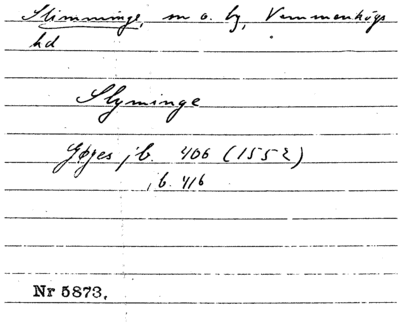 Slimminge, sn o. by, Vemmenhögs
hd
Slyminge
Gøjes jb. 406 (1552)
ib. 416
Nr 5873.